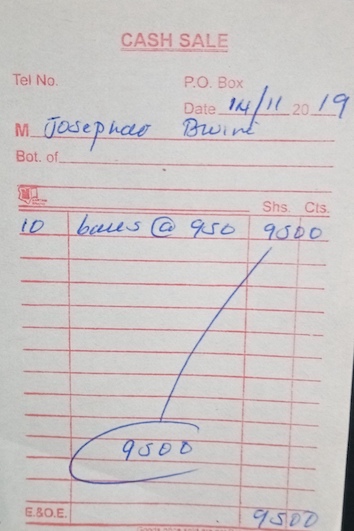 CASH SALE
Tel No. P.O. Box
Date 14/11 2019
M Josephat Bwire
Bot. of
Shs. Cts.
10 bales @ 950 9500
9500
E.&O.E. 9500